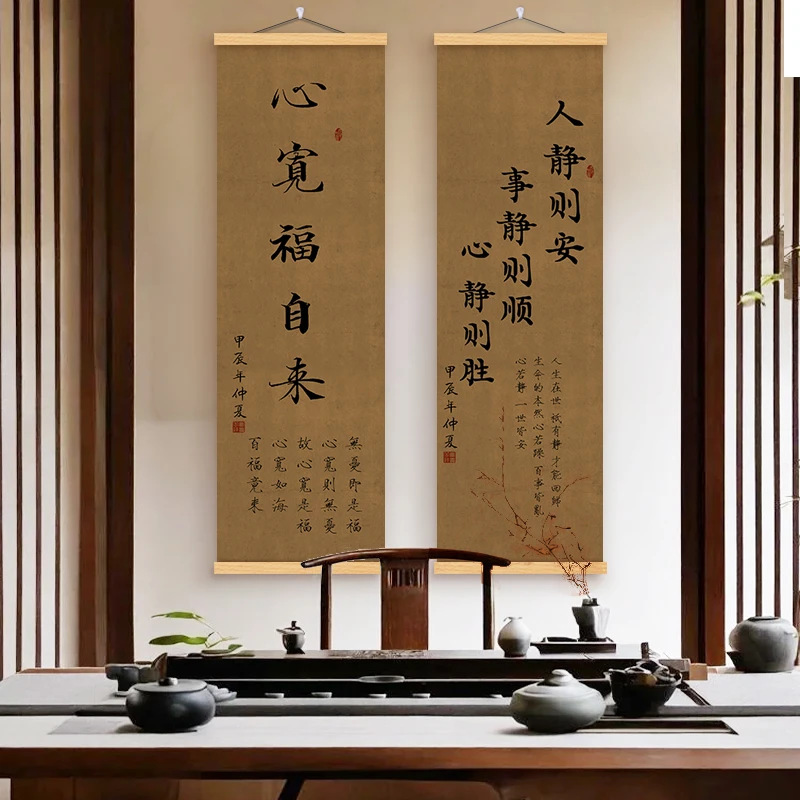 心寬福自来
無憂即是福
心寬則無憂
故心寬是福
心寬如海
百福竟来
甲辰年仲夏
人静则安
事静则顺
心静则胜
人生在世 祇有静 才能回歸
生命的本然 心若躁 百事皆亂
心若静 一世皆安
甲辰年仲夏